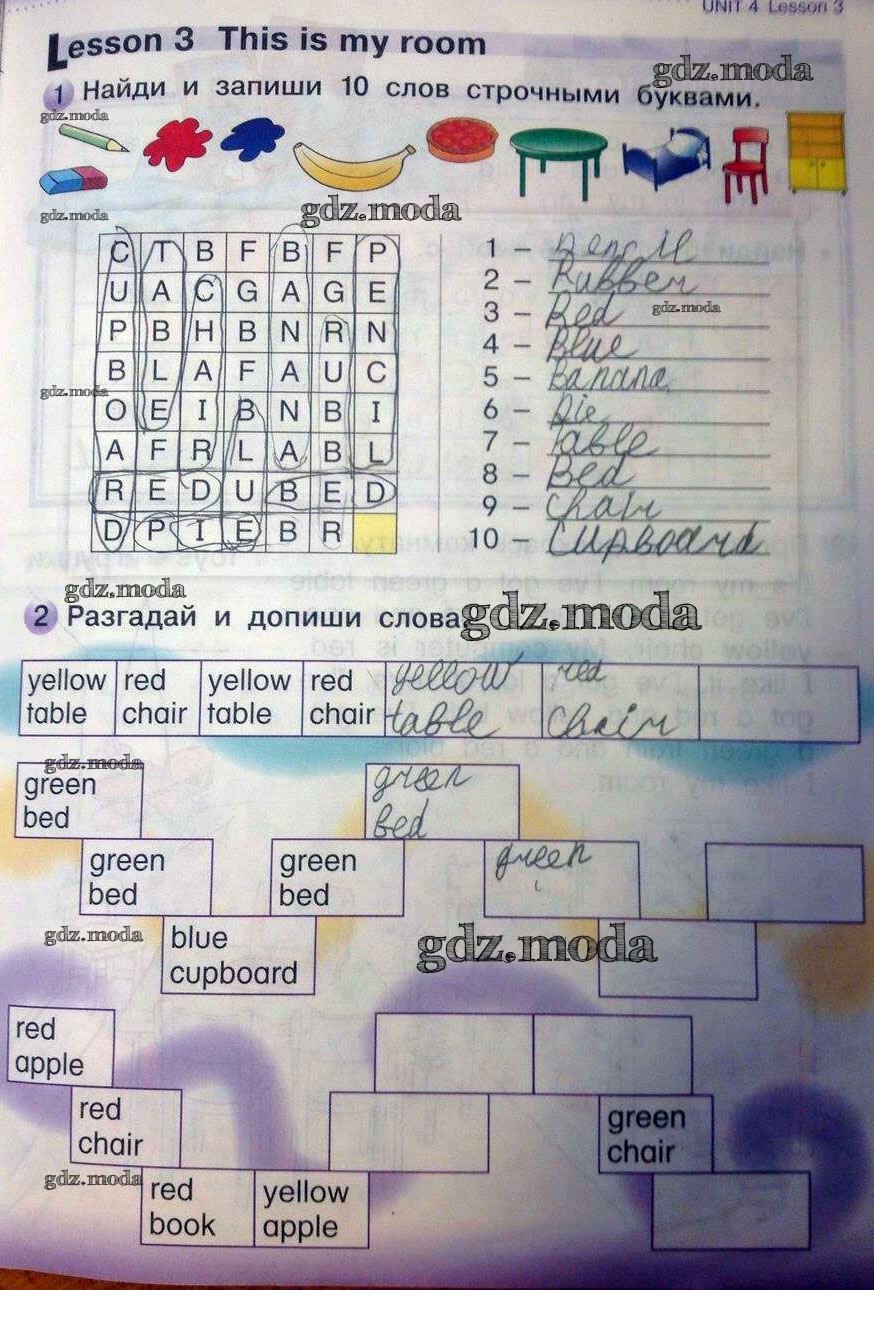 UNIT 4 Lesson 3
Lesson 3 This is my room
gdz.moda
1 Найди и запиши 10 слов строчными буквами.
gdz.moda
gdz.moda
gdz.moda
C T B F B F P
U A C G A G E
P B H B N R N
B L A F A U C
O E I B N B I
A F R L A B L
R E D U B E D
D P I E B R
1 – Pencil
2 – Rubber
gdz.moda
3 – Red
4 – Blue
5 – Banana
gdz.moda
6 – Pie
7 – Table
8 – Bed
9 – Chair
10 – Cupboard
gdz.moda
2 Разгадай и допиши слова.
gdz.moda
yellow table
red chair
yellow table
red chair
yellow table
red chair
gdz.moda
green bed
green bed
green bed
green bed
green
gdz.moda
blue cupboard
gdz.moda
red apple
red chair
green chair
gdz.moda
red book
yellow apple